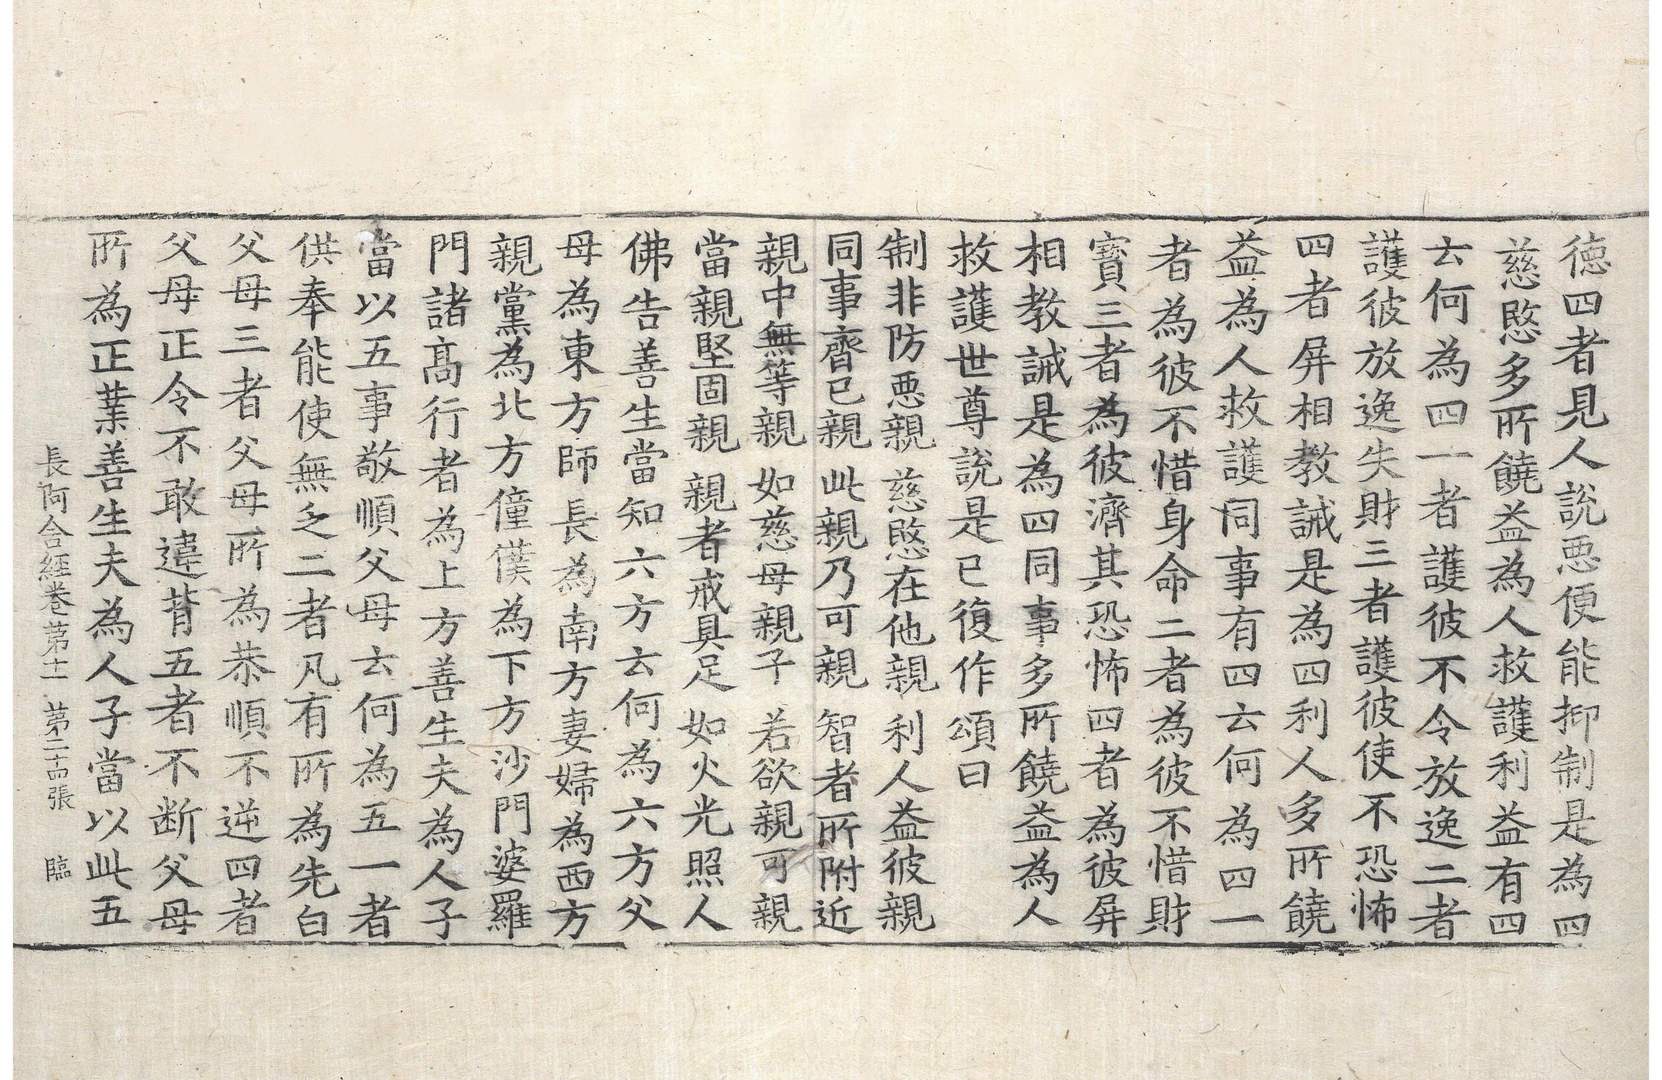 德四者見人說惡便能抑制是為四
慈愍多所饒益為人救護利益有四
云何為四一者護彼不令放逸二者
護彼放逸失財三者護彼使不恐怖
四者屏相教誡是為四利人多所饒
益為人救護同事有四云何為四一
者為彼不惜身命二者為彼不惜財
寶三者為彼濟其恐怖四者為彼屏
相教誡是為四同事多所饒益為人
救護世尊說是已復作頌曰
制非防惡親 慈愍在他親 利人益彼親
同事齊已親 此親乃可親 智者所附近
親中無等親 如慈母親子 若欲親可親
當親堅固親 親者戒具足 如火光照人
佛告善生當知六方云何為六方父
母為東方師長為南方妻婦為西方
親黨為北方僮僕為下方沙門婆羅
門諸高行者為上方善生夫為人子
當以五事敬順父母云何為五一者
供奉能使無乏二者凡有所為先白
父母三者父母所為恭順不逆四者
父母正令不敢違背五者不斷父母
所為正業善生夫為人子當以此五
長阿含經卷第十一 第二十四張 臨